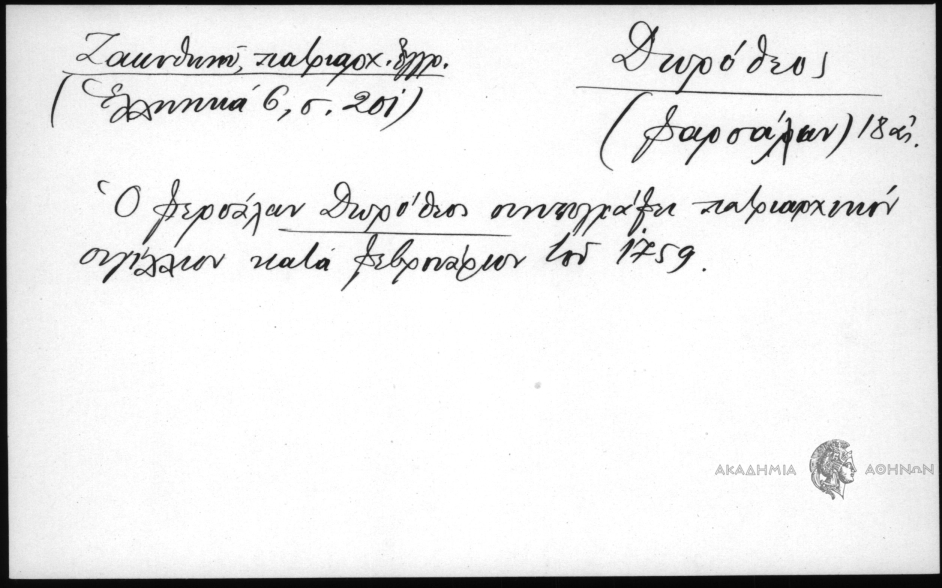 Ζακυθηνοῦ, πατριαρχ. ἔγγρ.
(Ἑλληνικά 6, σ. 201)
Δωρόθεος
(Φαρσάλων) 18 αἰ.
Ὁ Φερσάλων Δωρόθεος συνυπογράφει πατριαρχικόν
σιγίλλιον κατά Φεβρουάριον τοῦ 1759.
ΑΚΑΔΗΜΙΑ ΑΘΗΝΩΝ